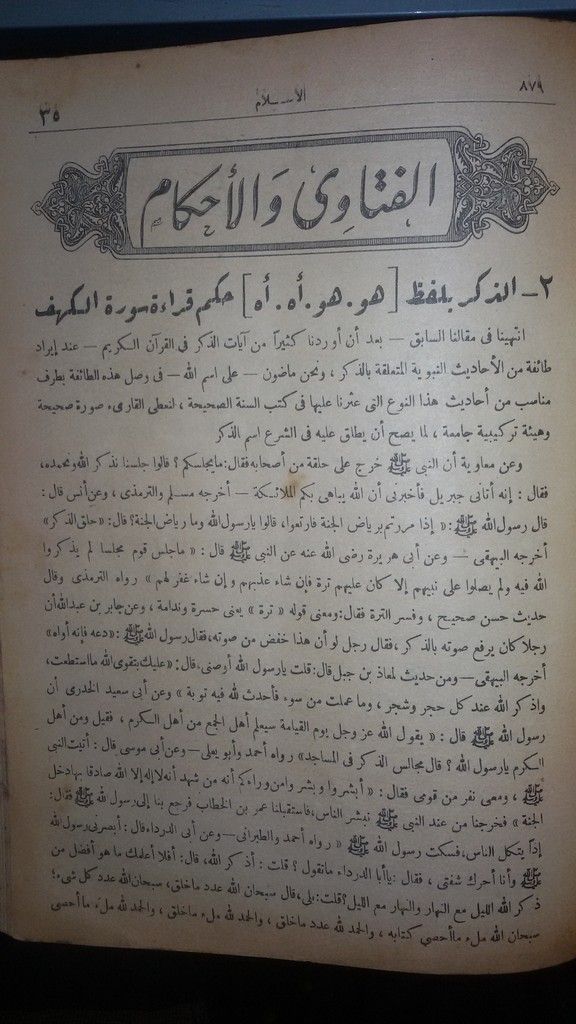 ٨٧٩ الإسلام ٣٥
الفتاوى والأحكام
٢ــ الذكر بلفظ [هو . هو . أه . أه] حكم قراءة سورة الكهف
انتهينا فى مقالنا السابق — بعد أن أوردنا كثيراً من آيات الذكر فى القرآن الكريم — عند إيراد
طائفة من الأحاديث النبوية المتعلقة بالذكر ، ونحن ماضون — على اسم الله — فى وصل هذه الطائفة بطرف
مناسب من أحاديث هذا النوع التى عثرنا عليها فى كتب السنة الصحيحة ، لنعطى القارىء صورة صحيحة
وهيئة تركيبية جامعة ، لما يصح أن يطلق عليه فى الشرع اسم الذكر
وعن معاوية أن النبى ﷺ خرج على حلقة من أصحابه فقال : مايجلسكم ؟ قالوا جلسنا نذكر الله ونحمده ،
فقال : إنه أتانى جبريل فأخبرنى أن الله يباهى بكم الملائكة — أخرجه مسلم والترمذى ، وعن أنس قال :
قال رسول الله ﷺ : « إذا مررتم برياض الجنة فارتعوا ، قالوا يارسول الله وما رياض الجنة ؟ قال : «حلق الذكر»
أخرجه البيهقى — وعن أبى هريرة رضى الله عنه عن النبى ﷺ قال : « ماجلس قوم مجلسا لم يذكروا
الله فيه ولم يصلوا على نبيهم إلا كان عليهم ترة فإن شاء عذبهم وإن شاء غفر لهم » رواه الترمذى وقال
حديث حسن صحيح ، وفسر الترة فقال : ومعنى قوله « ترة » يعنى حسرة وندامة ، وعن جابر بن عبد الله أن
رجلا كان يرفع صوته بالذكر ، فقال رجل لو أن هذا خفض من صوته ، فقال رسول الله ﷺ : «دعه فإنه أواه»
أخرجه البيهقى — ومن حديث لمعاذ بن جبل قال : قلت يارسول الله أوصنى ، قال : « عليك بتقوى الله مااستطعت ،
واذكر الله عند كل حجر وشجر ، وما عملت من سوء فأحدث لله فيه توبة » وعن أبى سعيد الخدرى أن
رسول الله ﷺ قال : « يقول الله عز وجل يوم القيامة سيعلم أهل الجمع من أهل الكرم ، فقيل ومن أهل
الكرم يارسول الله ؟ قال مجالس الذكر فى المساجد » رواه أحمد وأبو يعلى — وعن أبى موسى قال : أتيت النبى
ﷺ ، ومعى نفر من قومى فقال : « أبشروا وبشر وامن وراءكم أنه من شهد أنه لاإله إلا الله صادقا بها دخل
الجنة » فخرجنا من عند النبى ﷺ نبشر الناس ، فاستقبلنا عمر بن الخطاب فرجع بنا إلى رسول الله ﷺ فقال :
إذاً يتكل الناس ، فسكت رسول الله ﷺ « رواه أحمد والطبرانى — وعن أبى الدرداء قال : أبصرنى رسول الله
ﷺ وأنا أحرك شفتى ، فقال : ياأبا الدرداء ماتقول ؟ قلت : أذكر الله ، قال : أفلا أعلمك ما هو أفضل من
ذكر الله الليل مع النهار والنهار مع الليل ؟ قلت : بلى ، قال سبحان الله عدد ماخلق ، سبحان الله عدد كل شىء ؛
سبحان الله ملء ماأحصي كتابه ، والحمد لله عدد ماخلق ، والحمد لله ملء ماخلق ، والحمد لله ملء ماأحصي